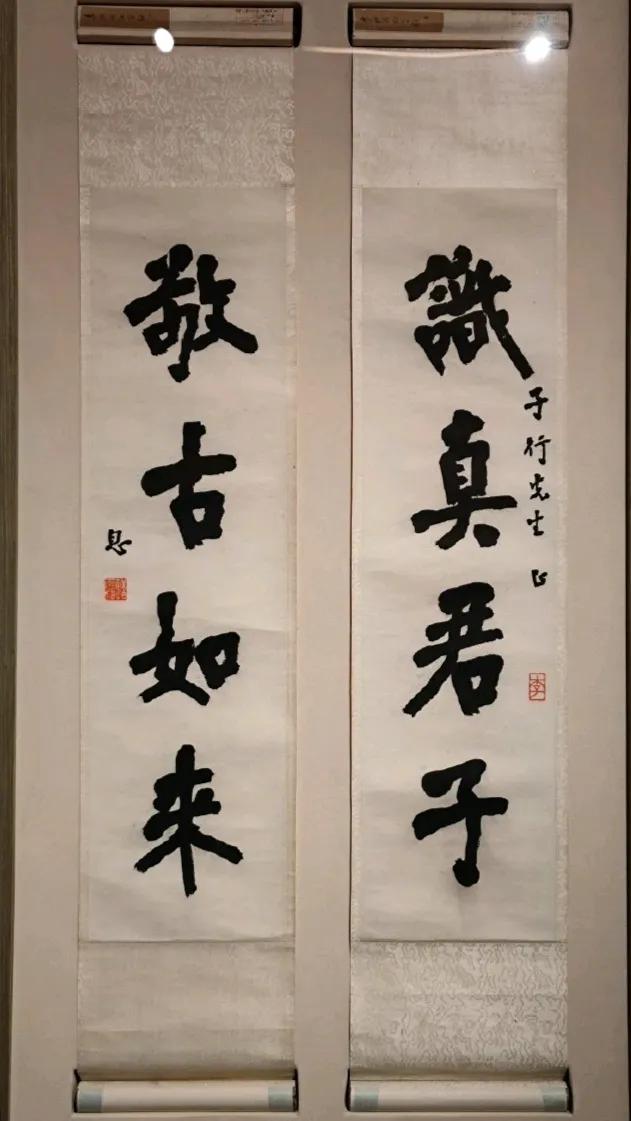 識真君子
子行先生正
李
敬古如來
息